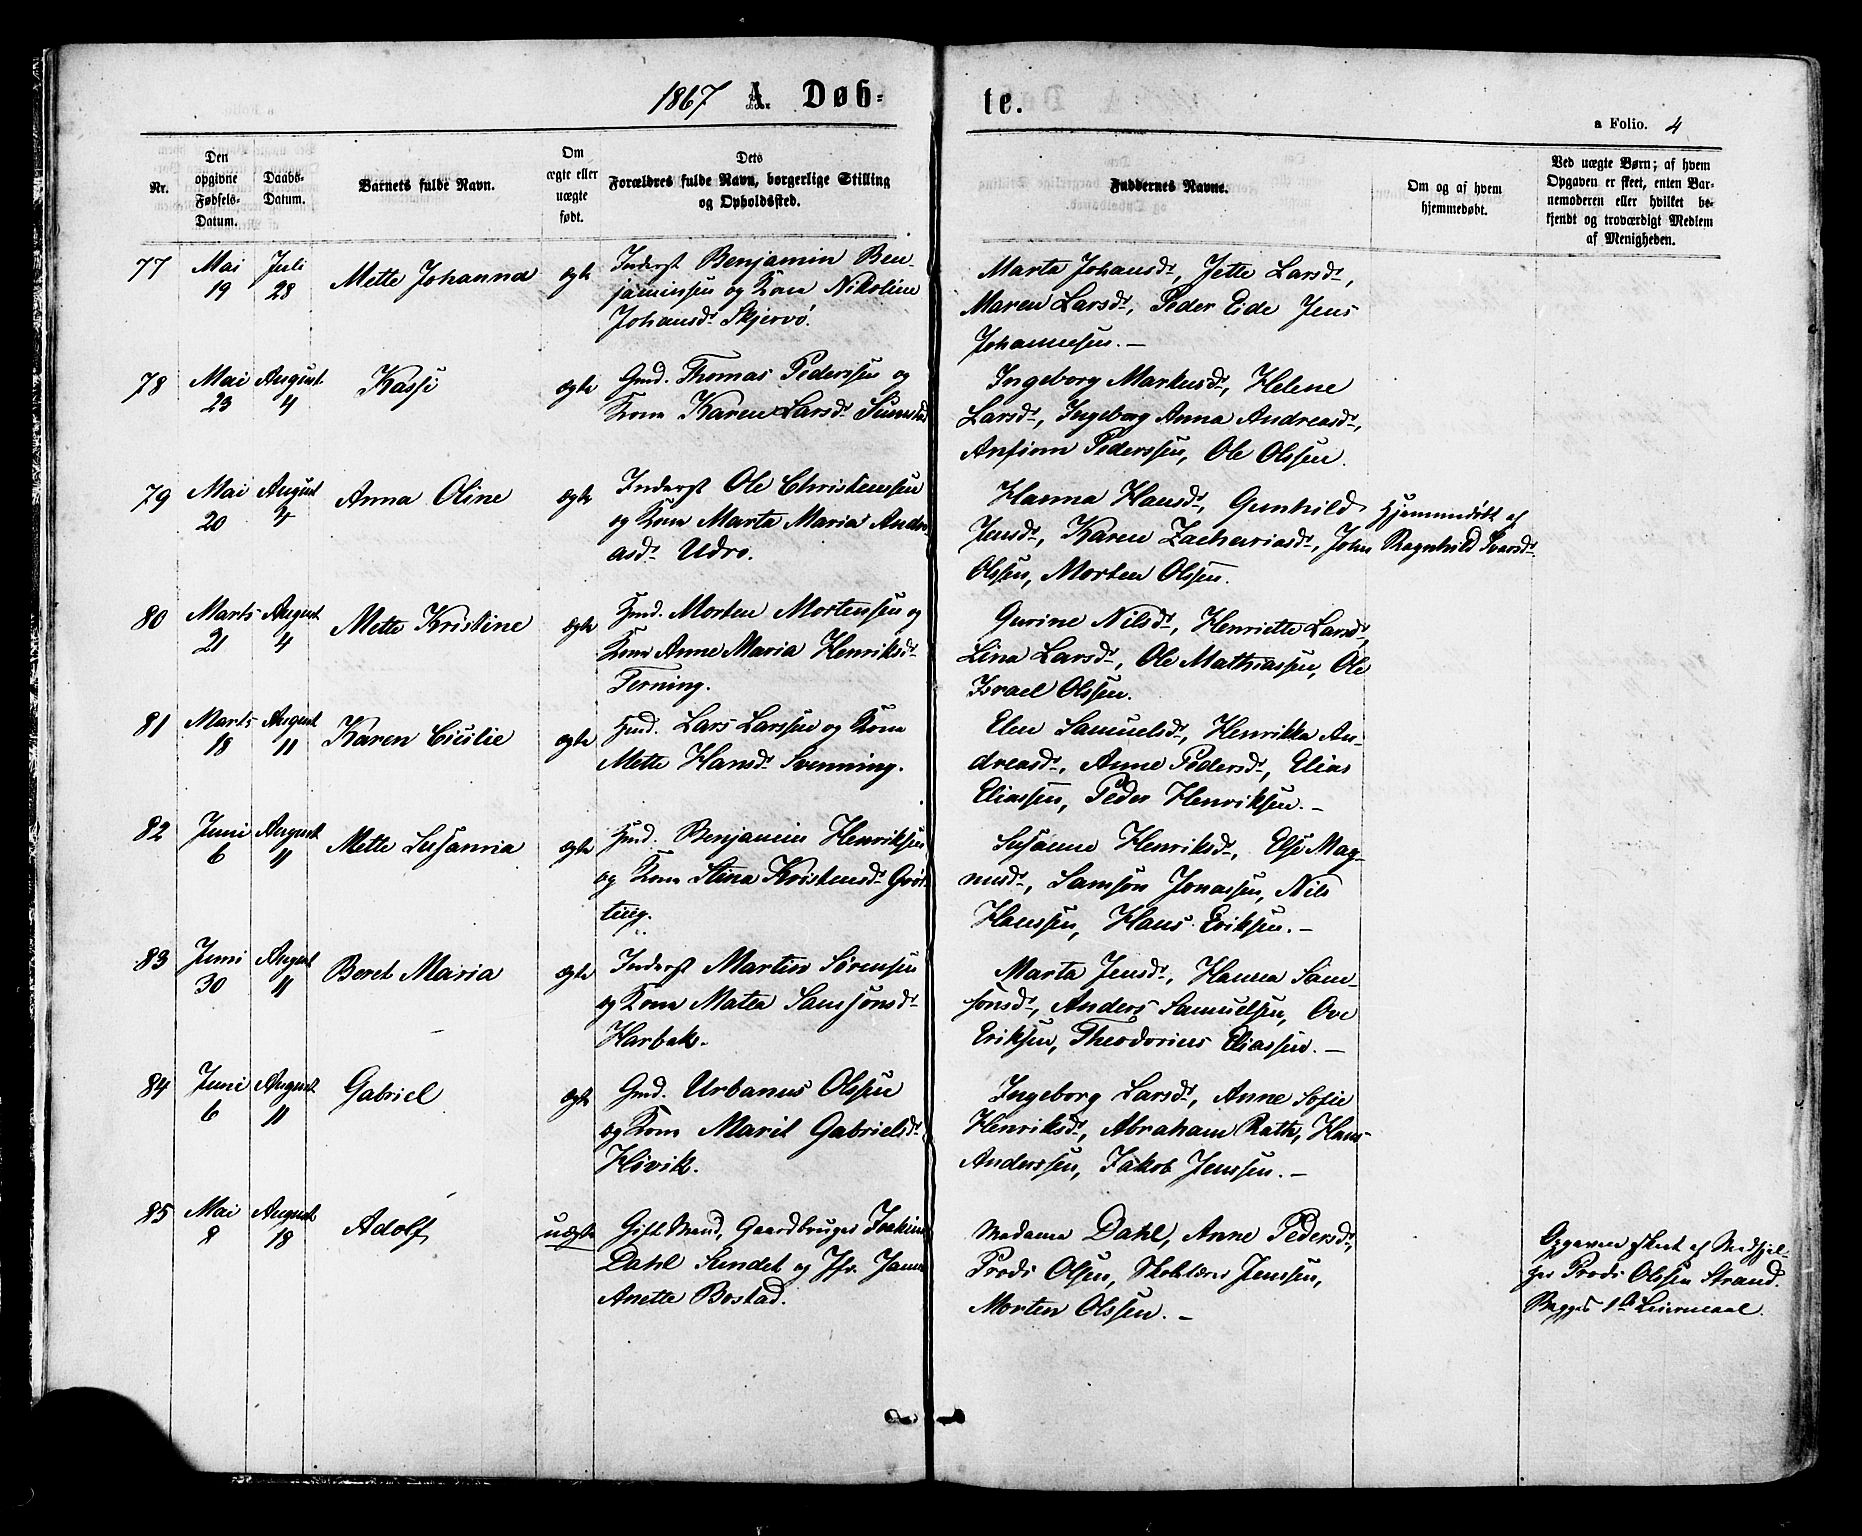 1867 A. Døb-te.
a Folio. 4
Nr.
Den opgivne Fødsels-Datum.
Daabs-Datum.
Barnets fulde Navn.
Om ægte eller uægte født.
Dets Forældres fulde Navn, borgerlige Stilling og Opholdssted.
Faddernes Navne.
Om og af hvem hjemmedøbt.
Ved uægte Børn; af hvem Opgaven er skeet, enten Bar-nemoderen eller hvilket be-kjendt og troværdigt Medlem af Menigheden.
77 Mai 19 Juli 28 Mette Johanna ægte
Inderst Benjamin Ben-
jaminsen og Kone Nikoline
Johansd. Skjervø.
Marta Johansd., Jette Larsd.,
Maren Larsd., Peder Eide Jens
Johannesen. —
78 Mai 23 August 4 Kasse ægte
Gmd. Thomas Pederssen og
Kone Karen Larsd. Sumstad
Ingeborg Markusd., Helene
Larsd., Ingeborg Anna Andreasd.,
Anfinn Pederssen, Ole Olssen.
79 Mai 20 August 4 Anna Oline ægte
Inderst Ole Christenssen
og Kone Marta Maria Andre-
asd. Udro.
Hanna Hansd., Gunhild
Jensd., Karen Zachariasd., John
Olssen, Morten Olssen.
Hjemmedøbt af
Ragnhild Ivarsd.
80 Marts 21 August 4 Mette Kristine ægte
Hmd. Morten Mortensen og
Kone Anne Maria Henriksd.
Terning.
Gurine Nilsd., Henriette Larsd.,
Lina Larsd., Ole Mathiassen, Ole
Israel Olssen.
81 Marts 18 August 11 Karen Cicilie ægte
Hmd. Lars Larssen og Kone
Mette Hansd. Svenning.
Elen Samuelsd., Henrikka An-
dreasd., Anne Pedersd., Elias
Eliassen, Peder Henriksen. —
82 Juni 6 August 11 Mette Susanna ægte
Hmd. Benjamin Henriksen
og Kone Stina Kristensd. Grøt-
ting.
Susanne Henriksd., Else Mag-
nusd., Samson Jonassen, Nils
Hanssen, Hans Eriksen. —
83 Juni 30 August 11 Beret Maria ægte
Inderst Martin Sørensen
og Kone Matea Samsonsd.
Harbak.
Marta Jensd., Hanna Sam-
sonsd., Anders Samuelsen, Ove
Eriksen, Theodorius Eliassen. —
84 Juni 6 August 11 Gabriel ægte
Gmd. Urbanus Olssen
og Kone Marit Gabrielsd.
Hövik.
Ingeborg Larsd., Anne Sofie
Henriksd., Abraham Rath, Hans
Anderssen, Jakob Jenssen. —
85 Mai 8 August 18 Adolf uægte
Gift Mand, Gaardbruger Joakim
Dahl Sundet og Jfr. Jana
Anette Bostad.
Madame Dahl, Anne Pedersd.,
Prods Olsen, Skolelærer Jenssen,
Morten Olssen. —
Opgaven skeet af Medhjel-
per Prods Olssen Strand.
Begges 1ste Leiermaal.